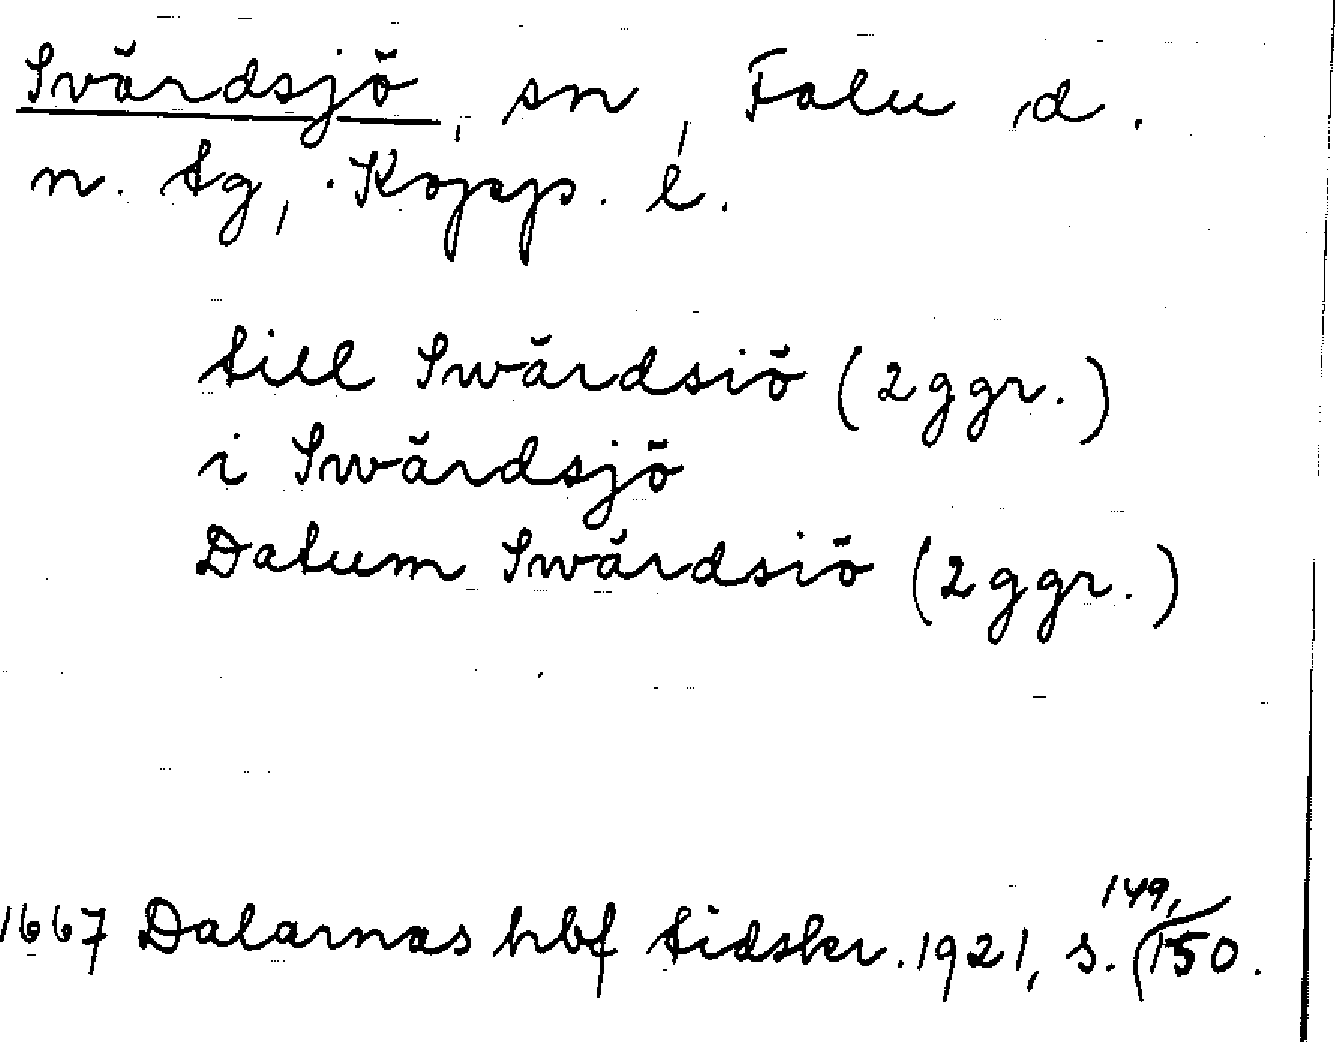 Svärdsjö, sn, Falu d.
n. tg, Kopp. l.
till Swärdsiö (2 ggr.)
i Swärdsjö
Datum Swärdsiö (2 ggr.)
1667 Dalarnas hbf tidskr. 1921, s. 149, 150.